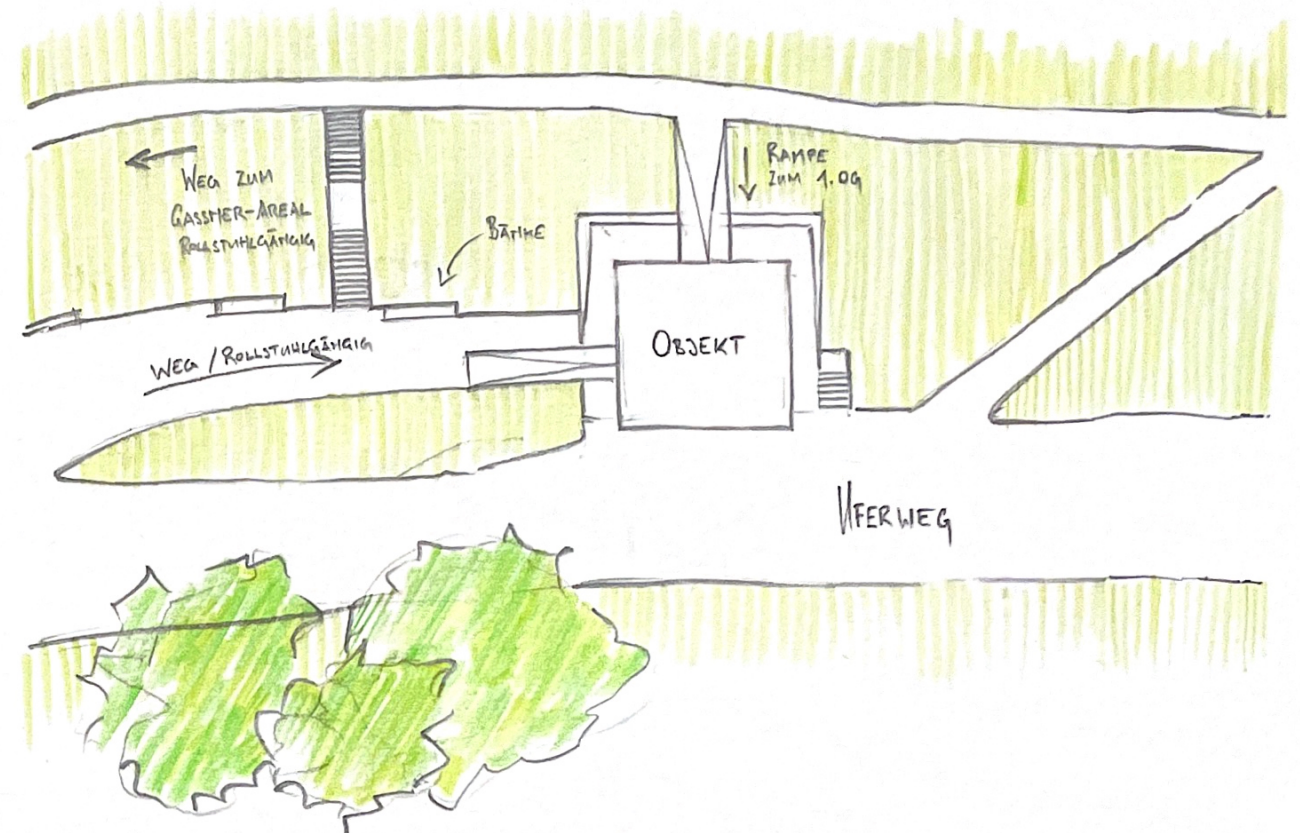 WEG ZUM
GASSNER-AREAL
ROLLSTUHLGÄNGIG
BÄNKE
RAMPE
ZUM 1.OG
WEG / ROLLSTUHLGÄNGIG
OBJEKT
UFERWEG